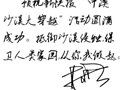 预祝新快报“中溪
沙漠大穿越”活动圆满
成功。抵御沙漠侵蚀保
卫人类家园从你我做起。